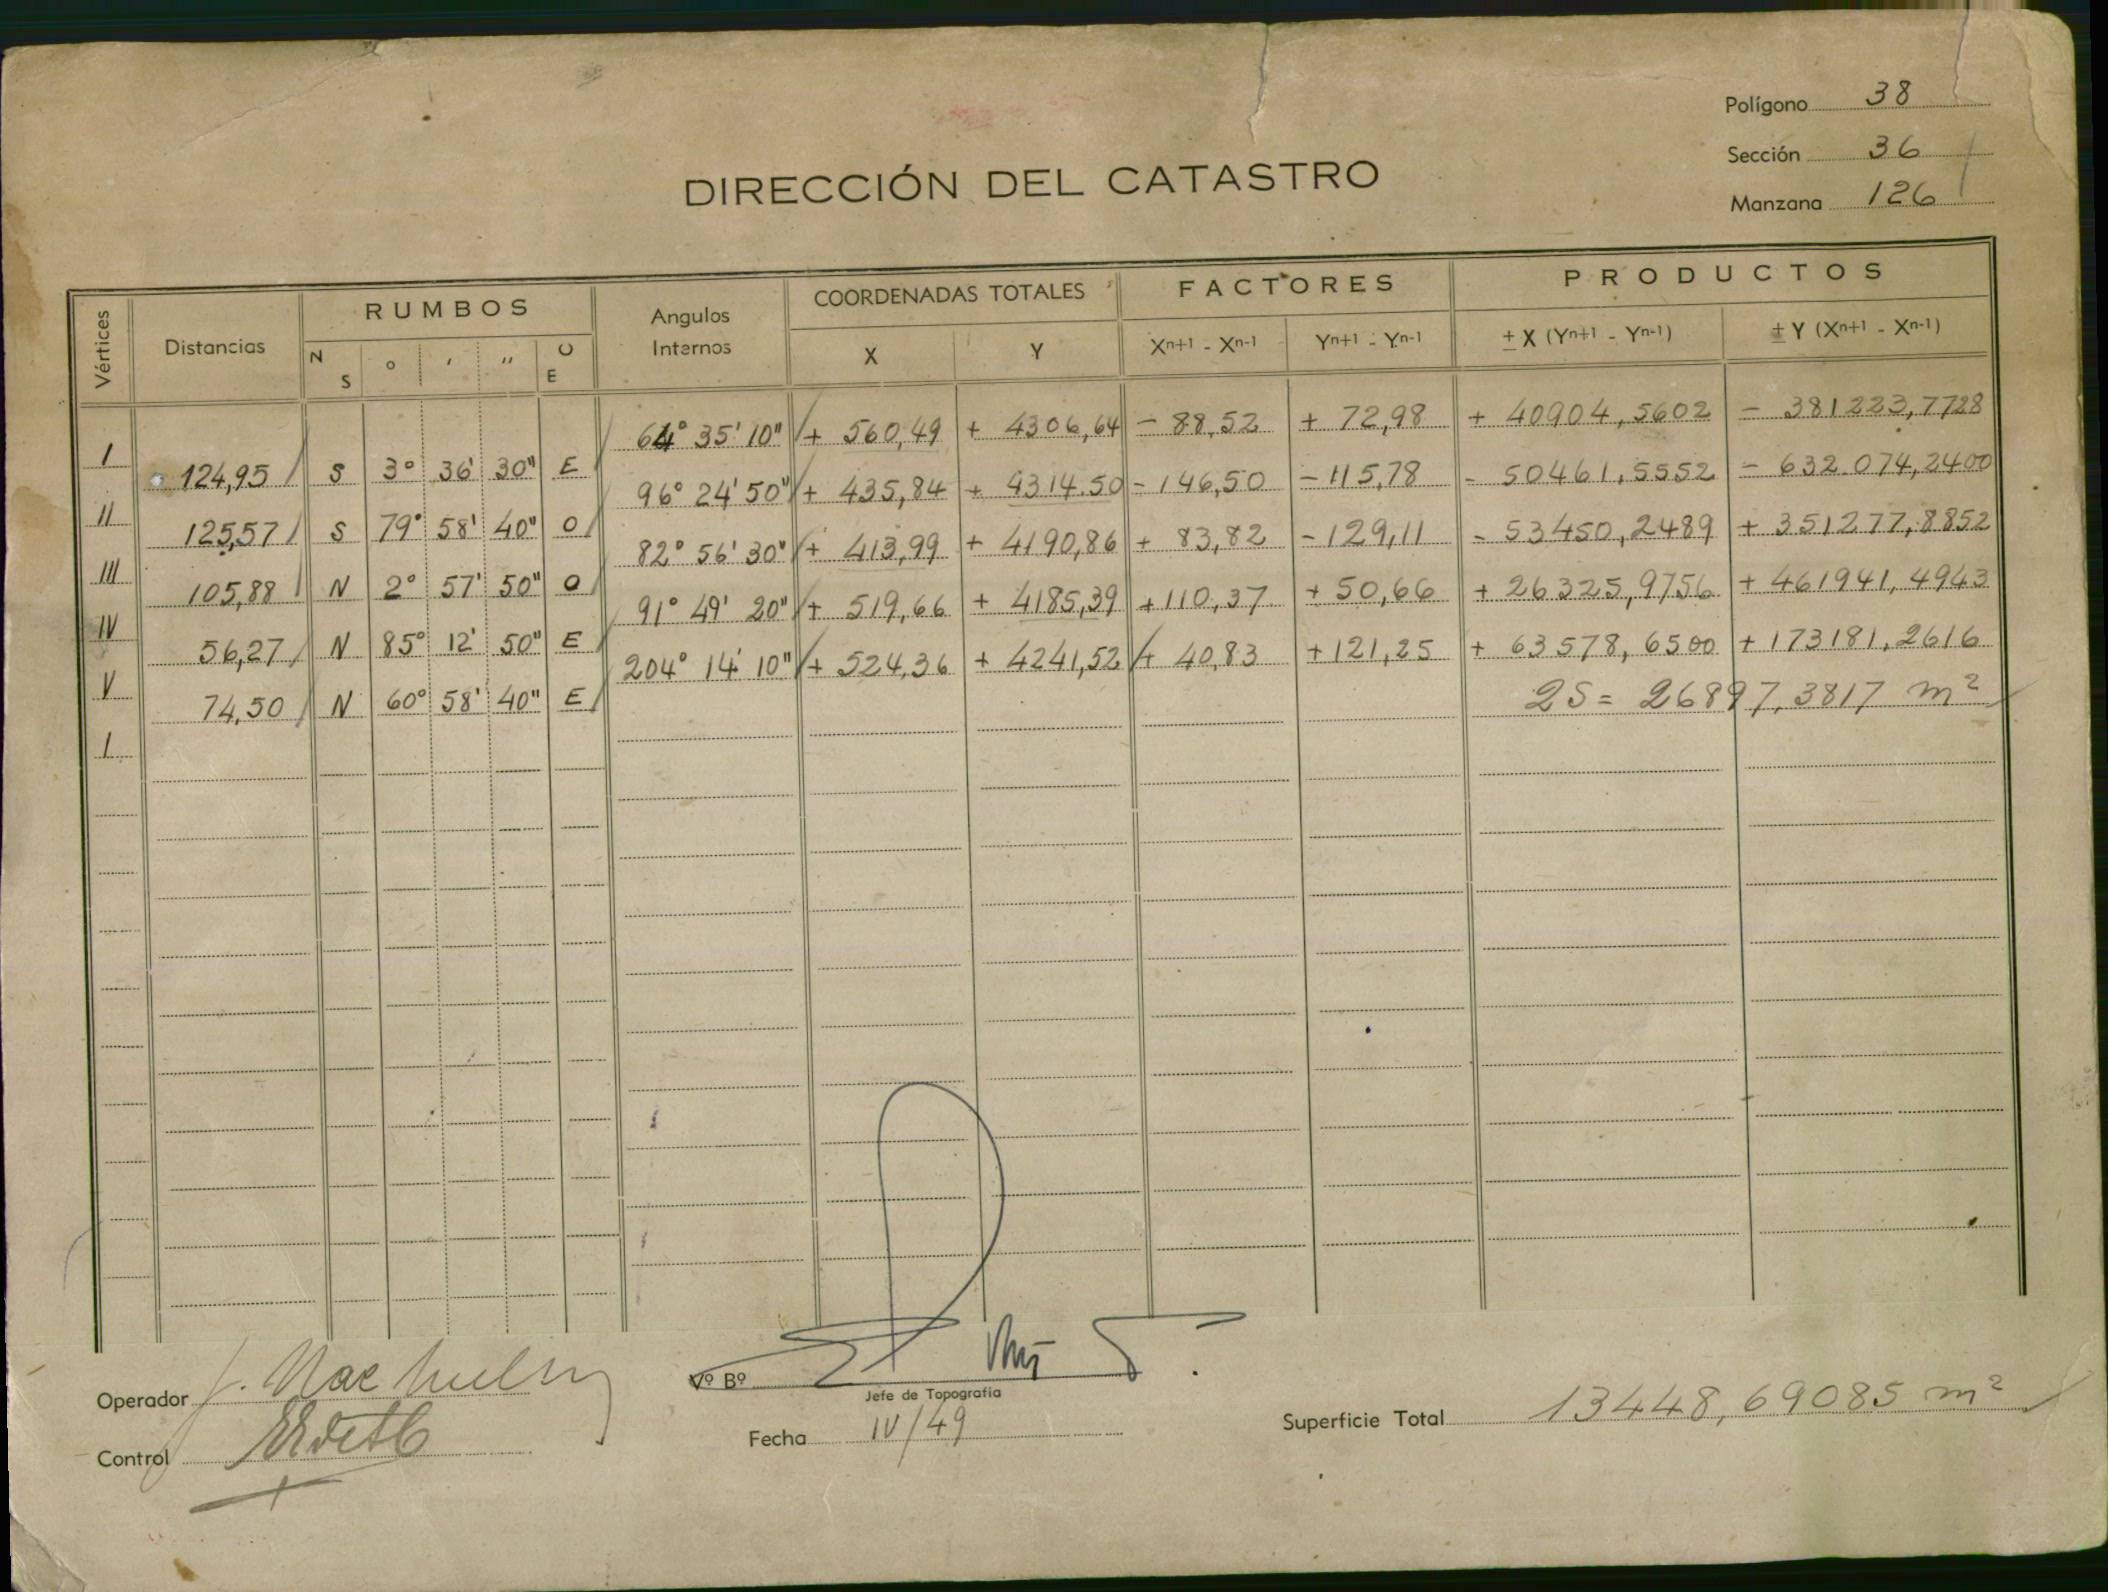 Polígono 38
Sección 36
Manzana 126
DIRECCIÓN DEL CATASTRO
Vértices Distancias RUMBOS Angulos Internos COORDENADAS TOTALES FACTORES PRODUCTOS
N S ° ′ ″ O E X Y Xn+1 - Xn-1 Yn+1 - Yn-1 ± X (Yn+1 - Yn-1) ± Y (Xn+1 - Xn-1)
64° 35' 10" + 560,49 + 4306,64 - 88,52 + 72,98 + 40904,5602 - 381223,7728
I 124,95 S 3° 36' 30" E
96° 24' 50" + 435,84 + 4314.50 - 146,50 - 115,78 - 50461,5552 - 632.074,2400
II 125,57 S 79° 58' 40" O
82° 56' 30" + 413,99 + 4190,86 + 83,82 - 129,11 - 53450,2489 + 351277,8852
III 105,88 N 2° 57' 50" O
91° 49' 20" + 519,66 + 4185,39 + 110,37 + 50,66 + 26325,9756 + 461941,4943
IV 56,27 N 85° 12' 50" E
204° 14' 10" + 524,36 + 4241,52 + 40,83 + 121,25 + 63578,6500 + 173181,2616
V 74,50 N 60° 58' 40" E
2S = 26897,3817 m²
I
Operador
Vº Bº
Jefe de Topografía
Control
Fecha IV/49
Superficie Total 13448,69085 m²